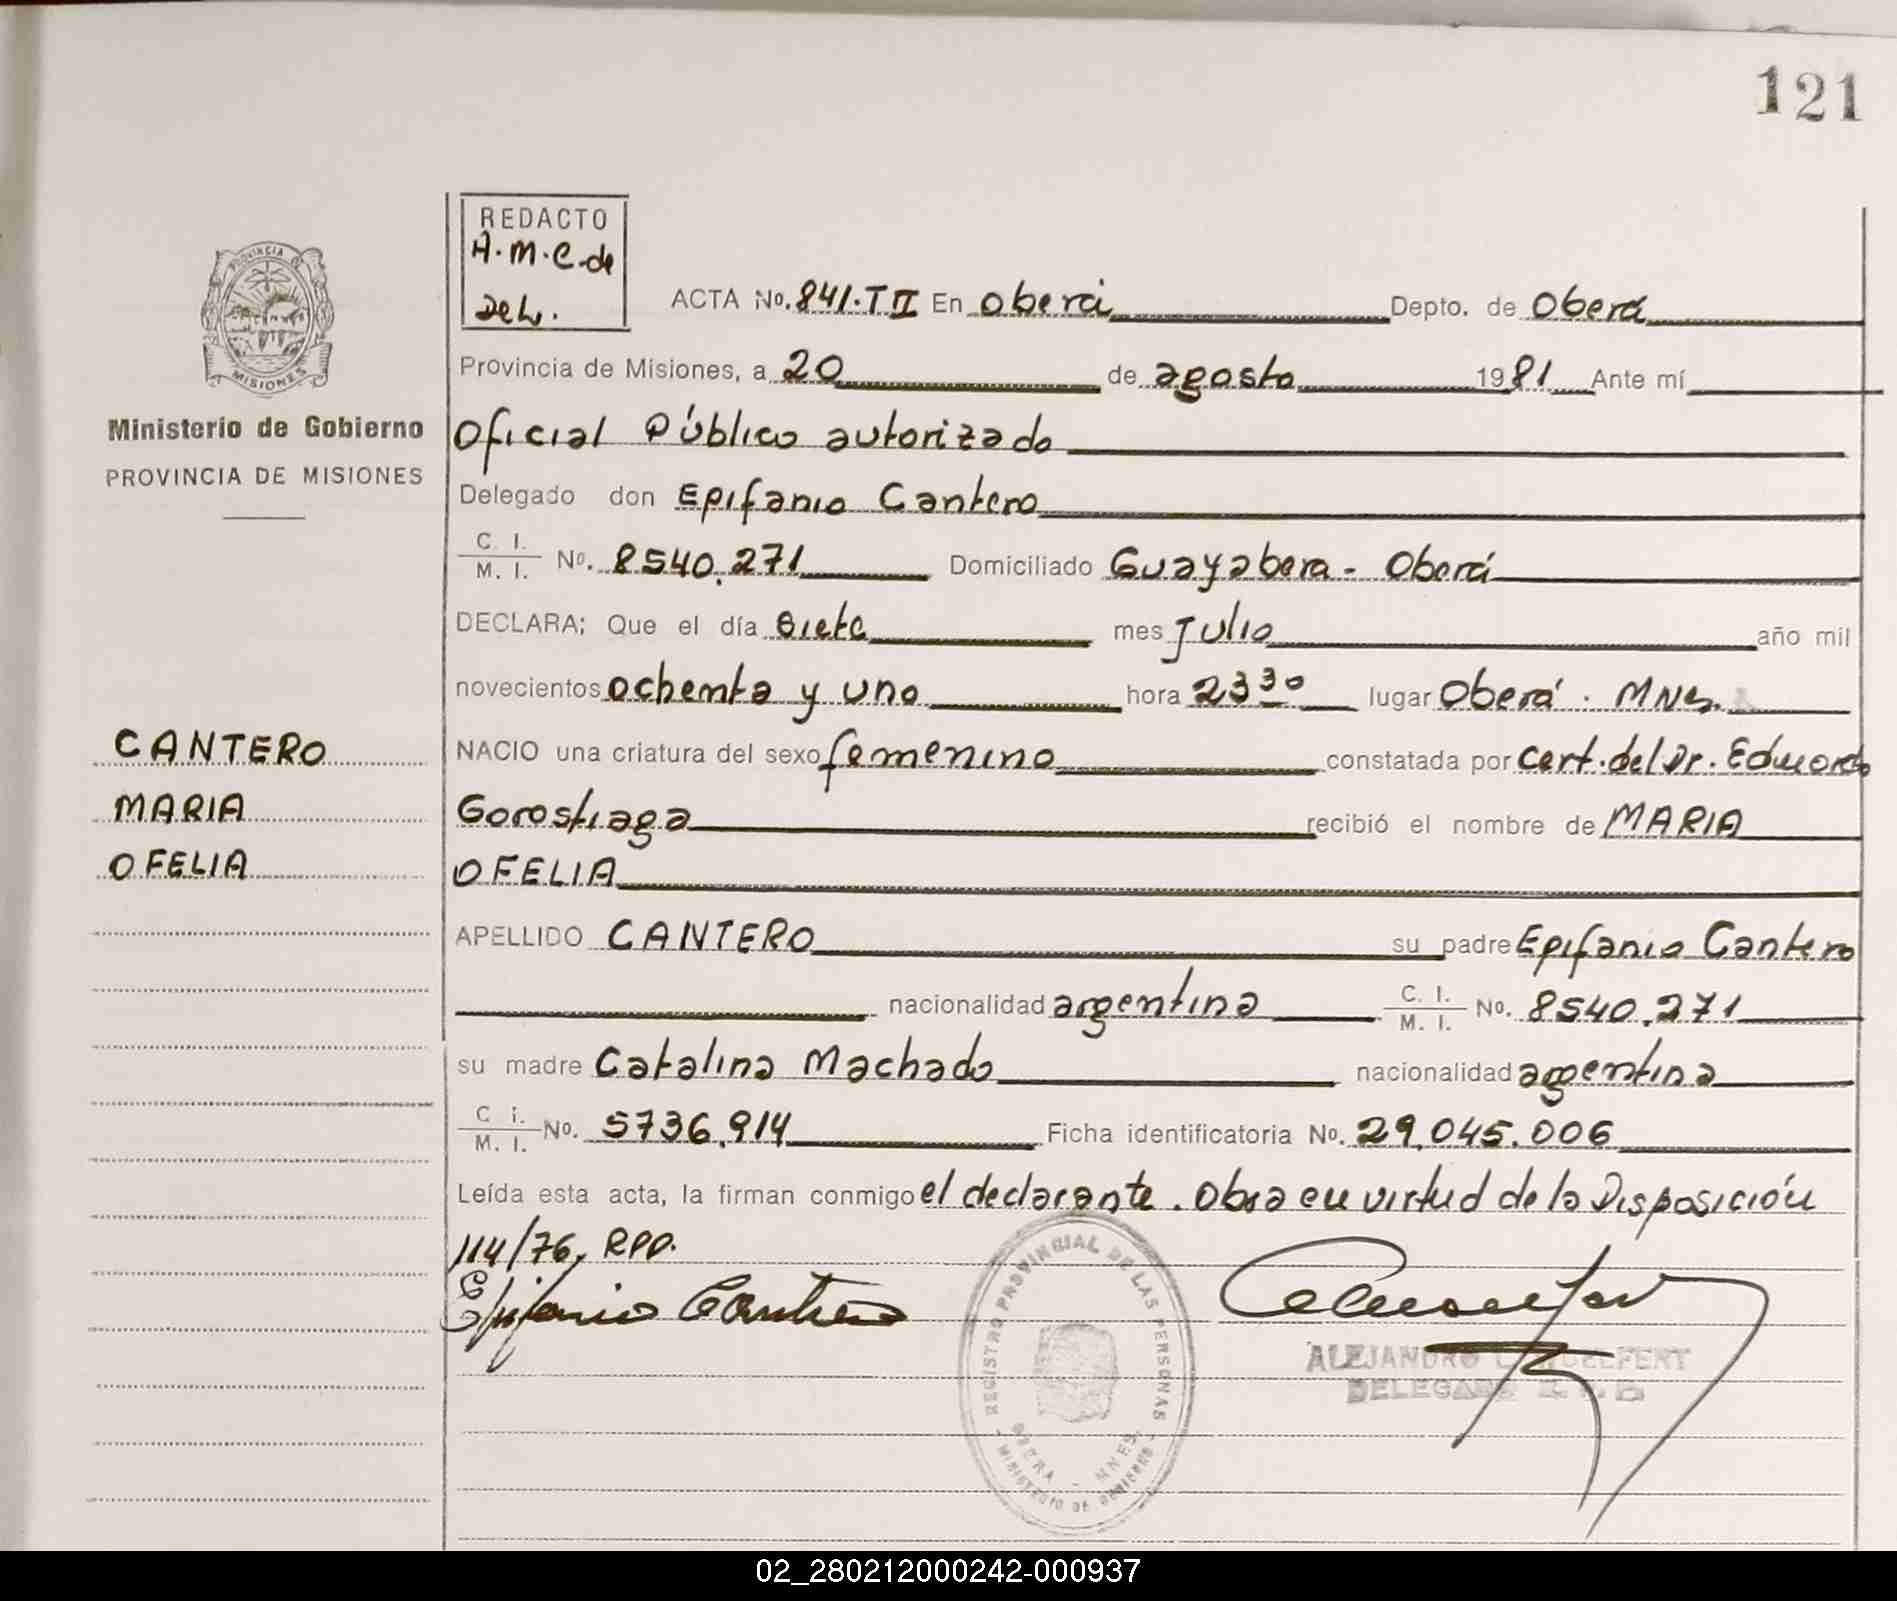 121
REDACTO
A.M.C. de
PROVINCIA DE
MISIONES
Ministerio de Gobierno
PROVINCIA DE MISIONES
ACTA No. 841.T II En Oberá Depto. de Oberá
Provincia de Misiones, a 20 de agosto 1981 Ante mí
Oficial Público autorizado
Delegado don Epifanio Cantero
C. I. / M. I. No. 8540.271 Domiciliado Guayabera - Oberá
DECLARA; Que el día Siete mes Julio año mil
novecientos ochenta y uno hora 23 30 lugar Oberá. Mnes.
CANTERO NACIO una criatura del sexo femenino constatada por Cert. del Dr. Eduardo
MARIA Gorostiaga recibió el nombre de MARIA
OFELIA OFELIA
APELLIDO CANTERO su padre Epifanio Cantero
nacionalidad argentina C. I. / M. I. No. 8540.271
su madre Catalina Machado nacionalidad argentina
C i. / M. I. No. 5736.914 Ficha identificatoria No. 29.045.006
Leída esta acta, la firman conmigo el declarante. Obra en virtud de la Disposición
114/76, RPP.
Epifanio Cantero
REGISTRO PROVINCIAL DE LAS PERSONAS
OBERA - MNES.
MINISTERIO DE GOBIERNO
ALEJANDRO
DELEGADO
02_280212000242-000937